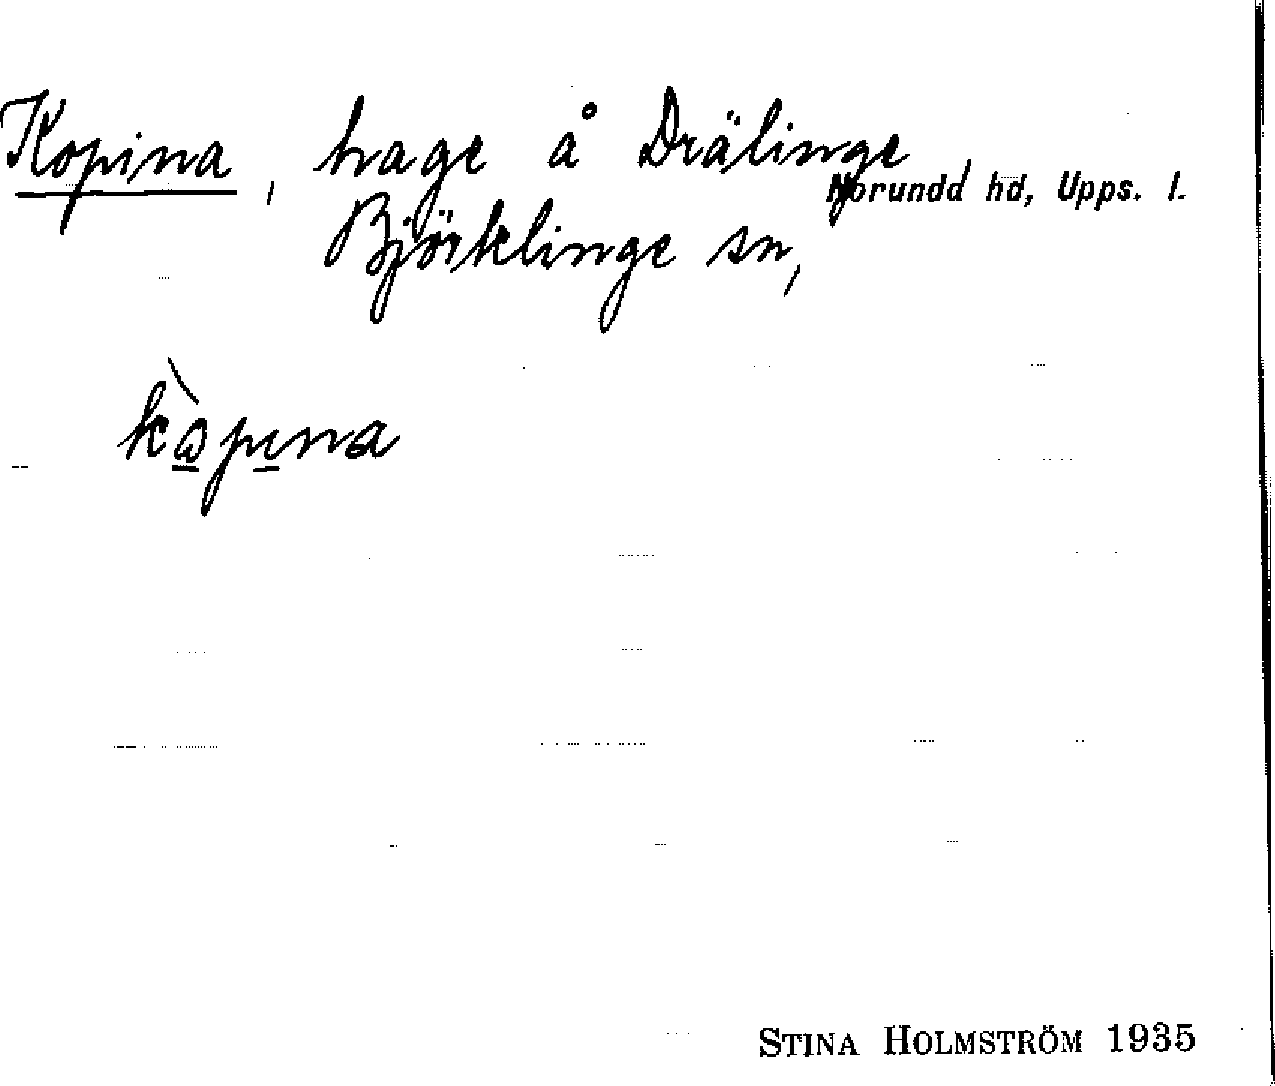 Kopina, hage å Drälinge,
Norundd hd, Upps. l.
Björklinge sn,
kòpına
STINA HOLMSTRÖM 1935